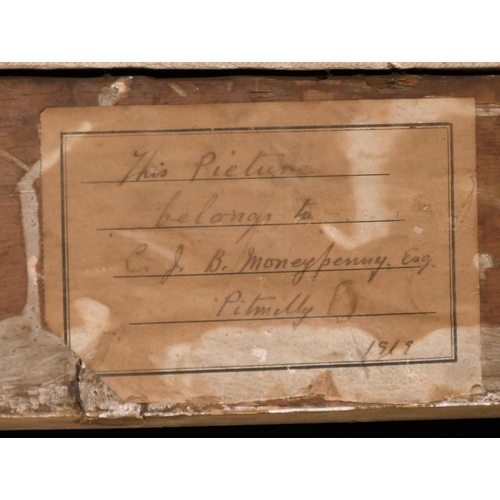 This Picture
belongs to
C. J. B. Moneypenny. Esq.
Pitmilly
1919